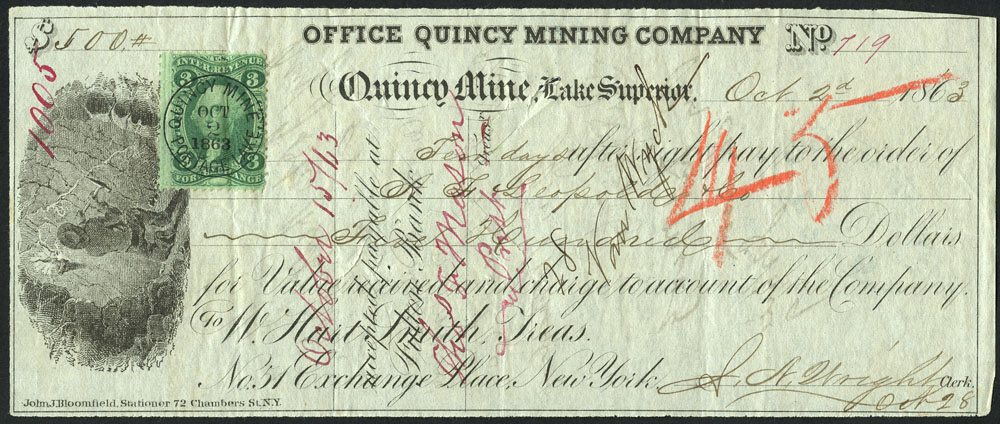 $500#
OFFICE QUINCY MINING COMPANY No 719
Quincy Mine, Lake Superior. Oct 2d 1863
Ten days after sight pay to the order of
S. F. Leopold & Co
Five Hundred Dollars
for Value received and charge to account of the Company.
To W. Hart Smith, Treas.
No. 31 Exchange Place, New York.
J. N. Wright Clerk.
Oct 28
John J. Bloomfield, Stationer 72 Chambers St. N.Y.
1005
U.S.
INTER. REVENUE
3 3
QUINCY MINE
OCT
2
1863
PORTAGE LAKE
3 3
FOR EXCHANGE
October 15/13
Accepted payable at
Bank
Thos F. Mason
Treasr
28
45